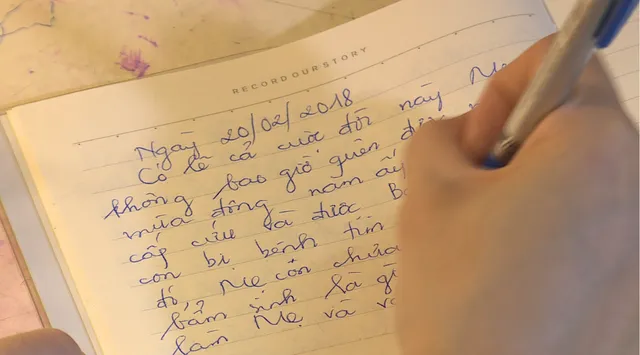 RECORD OUR STORY
Ngày 20/02/2018
Có lẽ cả cuộc đời này Mẹ
không bao giờ quên được
mùa đông năm ấy
cấp cứu và được
con bị bệnh tim
đó, Mẹ còn chưa
bẩm sinh là gì
làm Mẹ và